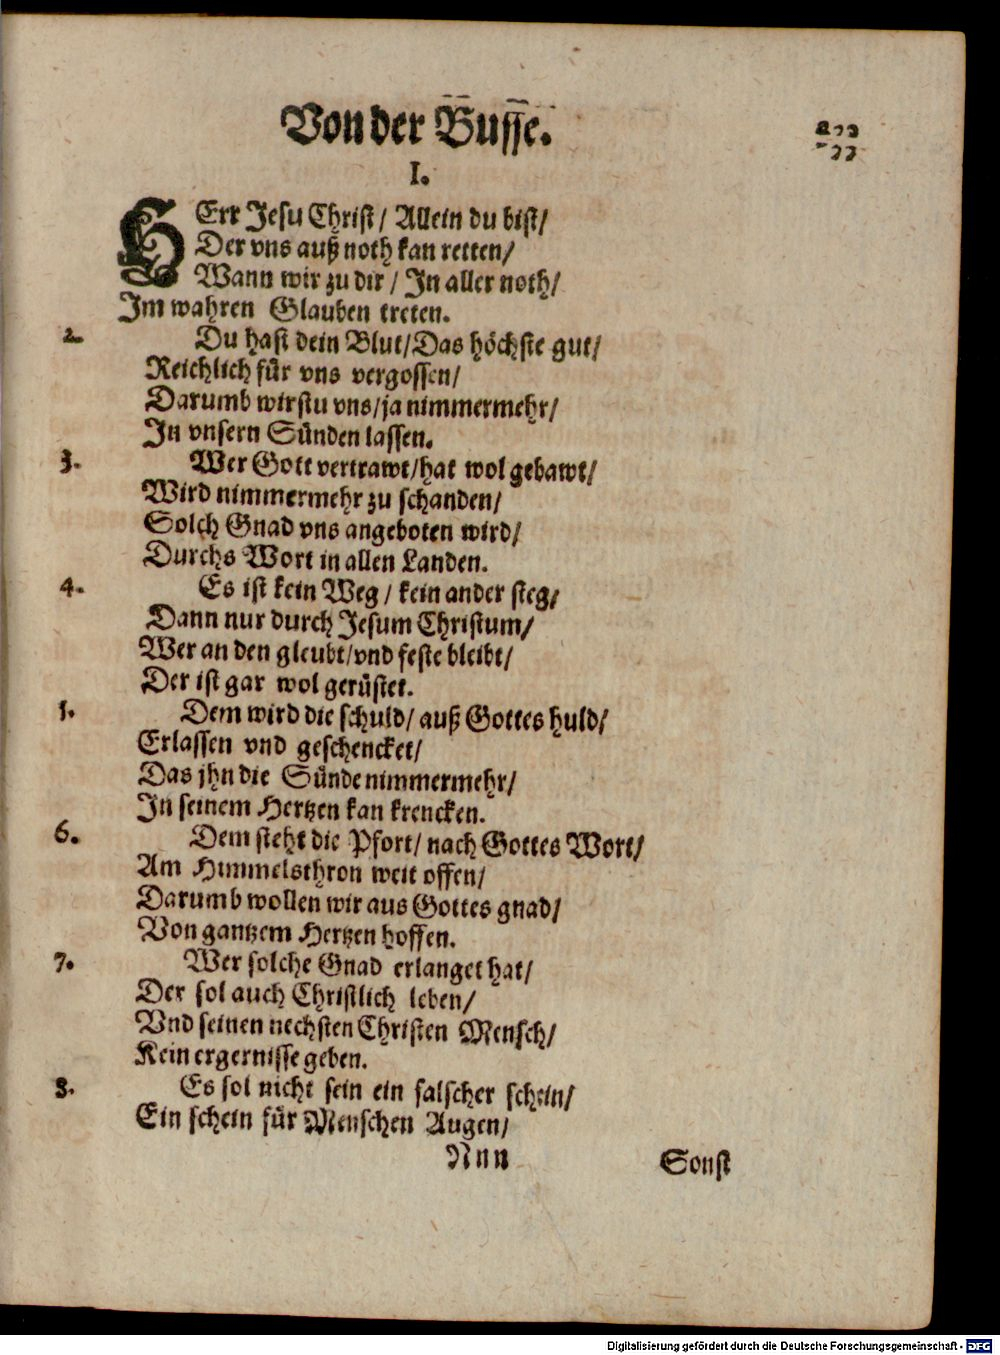 Von der Busse.
233
I.
HErr Jesu Christ / Allein du bist /
Der vns auß noth kan retten /
Wann wir zu dir / In aller noth /
Im wahren Glauben treten.
2. Du hast dein Blut / Das höchste gut /
Reichlich für vns vergossen /
Darumb wirstu vns / ja nimmermehr /
In vnsern Sünden lassen.
3. Wer Gott vertrawt / hat wol gebawt /
Wird nimmermehr zu schanden /
Solch Gnad vns angeboten wird /
Durchs Wort in allen Landen.
4. Es ist kein Weg / kein ander steg /
Dann nur durch Jesum Christum /
Wer an den gleubt / vnd feste bleibt /
Der ist gar wol gerüstet.
5. Dem wird die schuld / auß Gottes huld /
Erlassen vnd geschencket /
Das jhn die Sünde nimmermehr /
In seinem Hertzen kan krencken.
6. Dem steht die Pfort / nach Gottes Wort /
Am Himmelsthron weit offen /
Darumb wollen wir aus Gottes gnad /
Von gantzem Hertzen hoffen.
7. Wer solche Gnad erlanget hat /
Der sol auch Christlich leben /
Vnd seinen nechsten Christen Mensch /
Kein ergernisse geben.
8. Es sol nicht sein ein falscher schein /
Ein schein für Menschen Augen /
Nnn Sonst
Digitalisierung gefördert durch die Deutsche Forschungsgemeinschaft - DFG